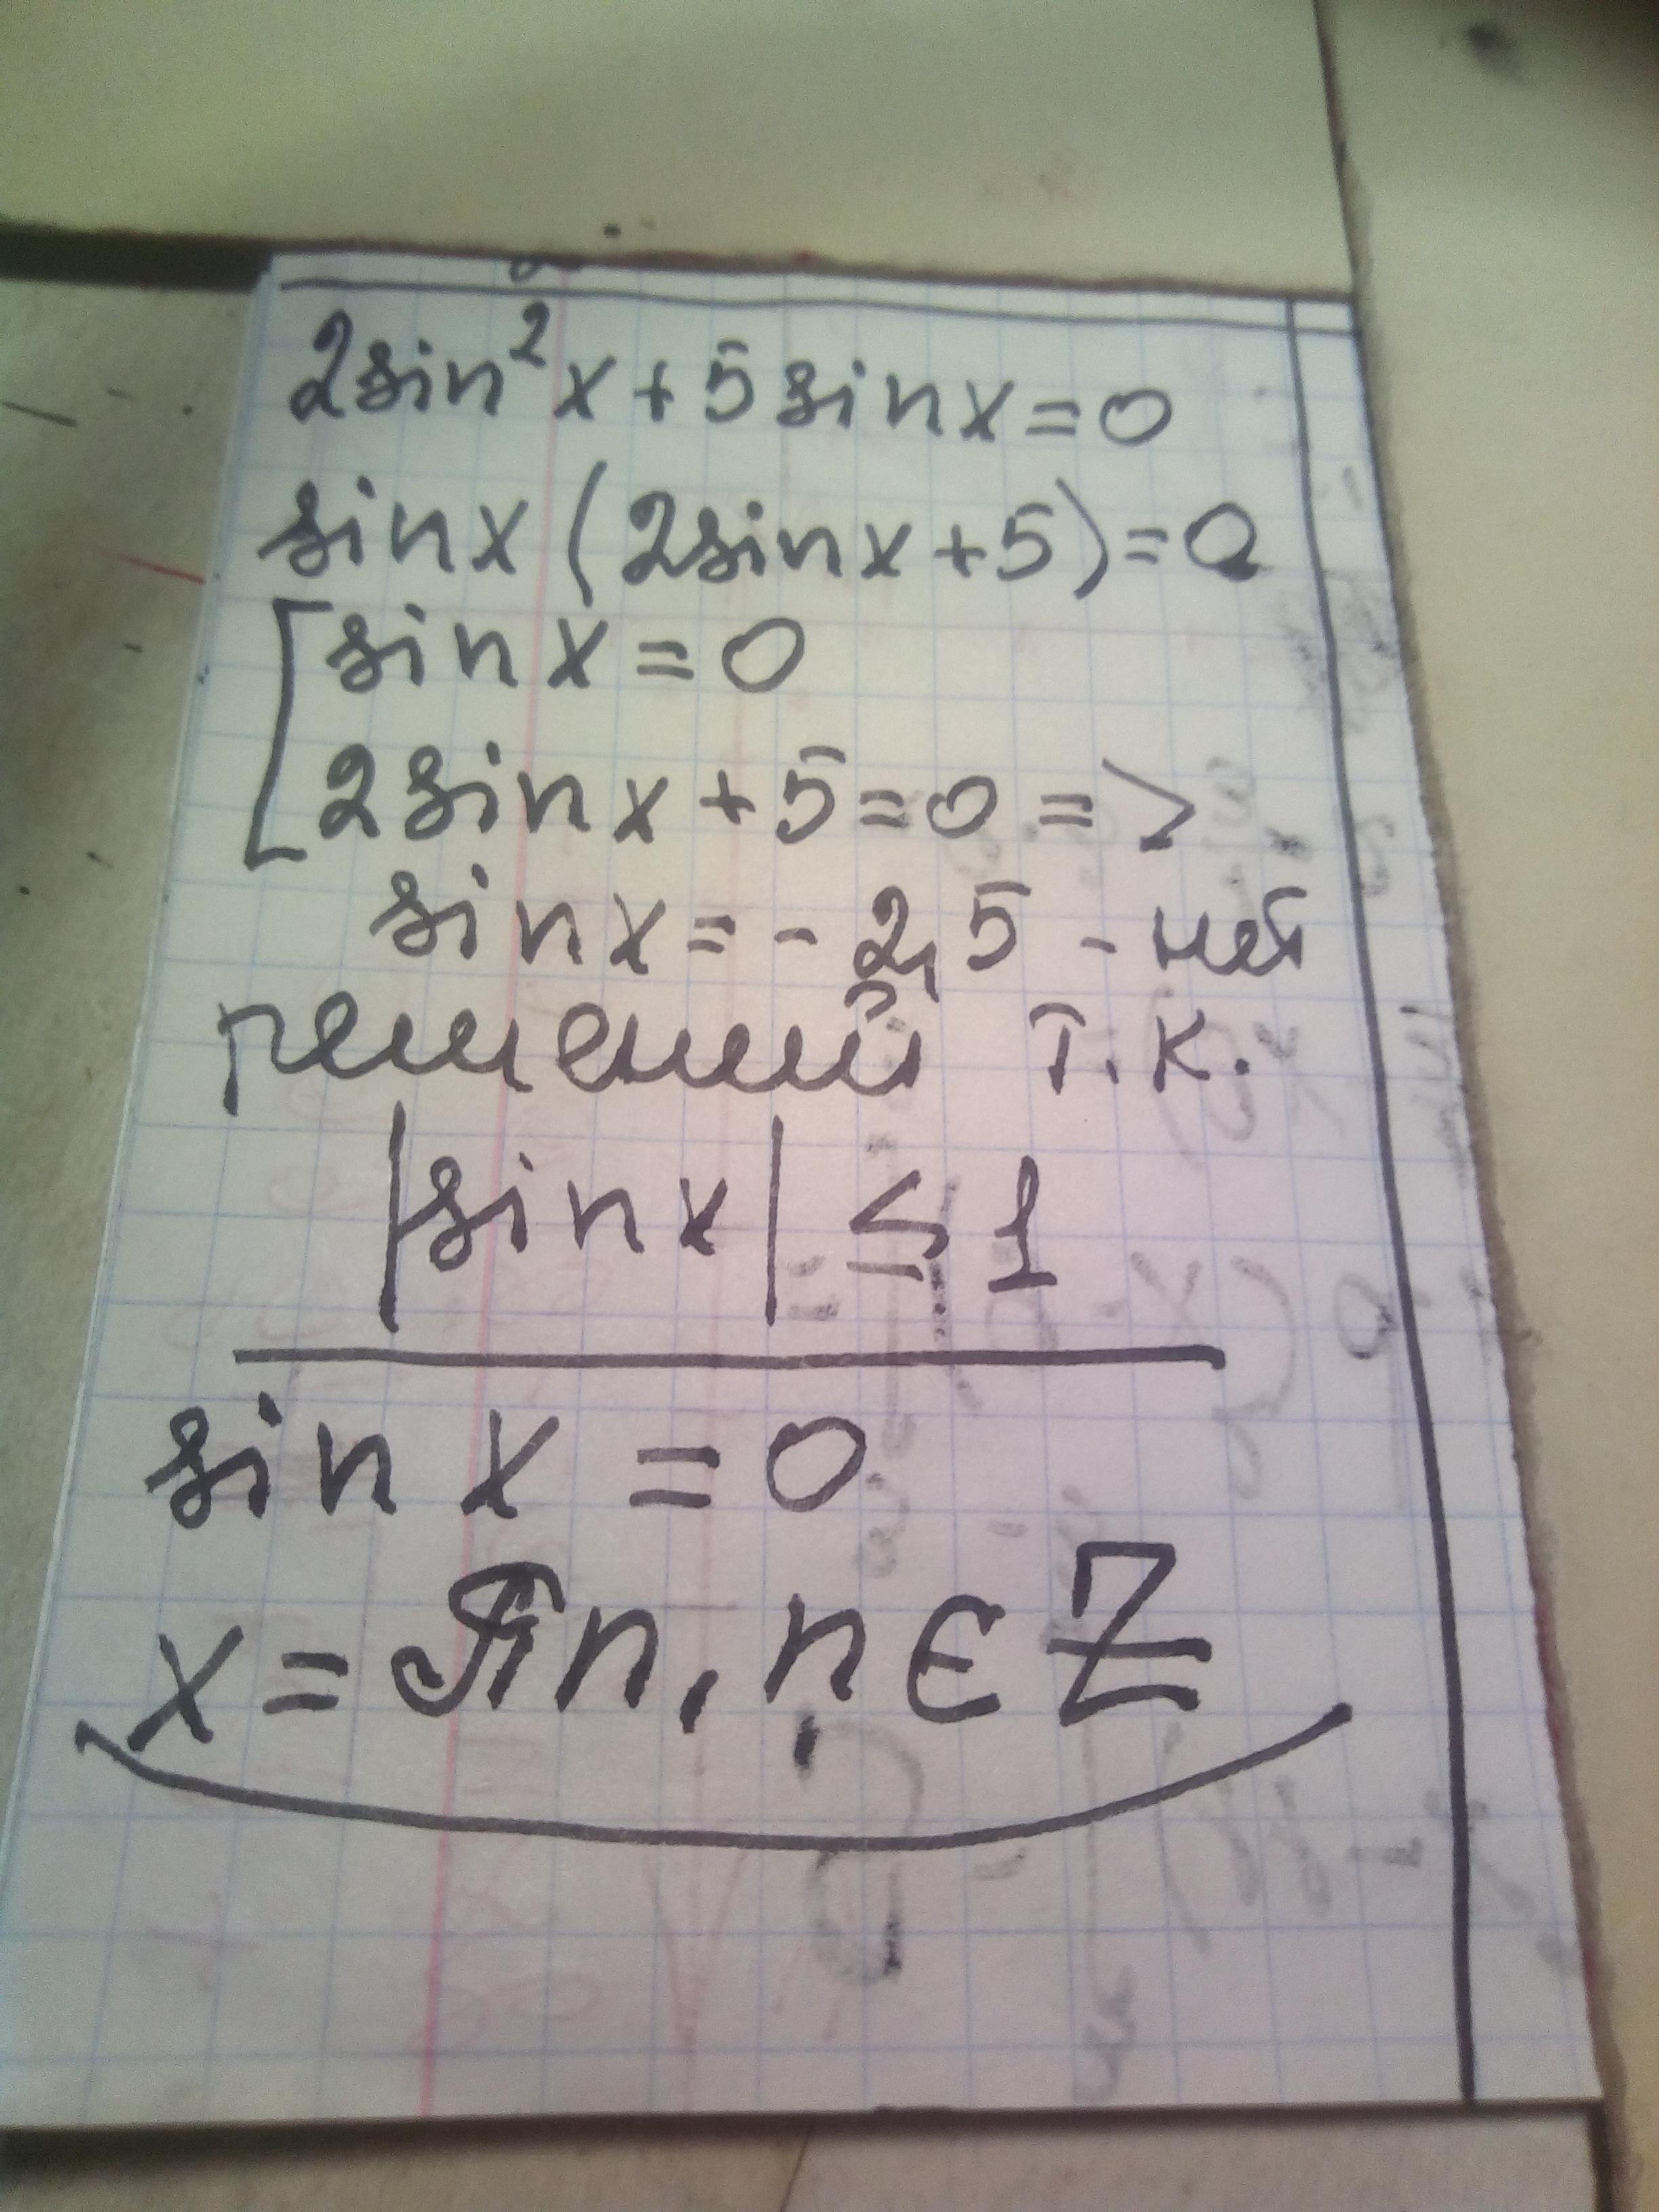 2sin²x+5sinx=0
sinx(2sinx+5)=0
[sinx=0
2sinx+5=0=>
sinx=-2,5-нет
решений т.к.
|sinx|≤1
sin x=0
x=πn, n∈Z